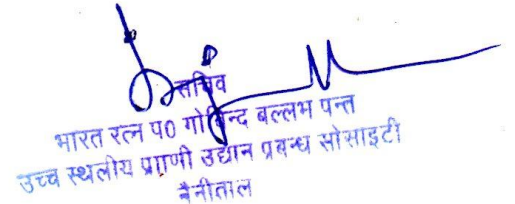 सचिव
भारत रत्न प० गोविन्द बल्लभ पन्त
उच्च स्थलीय प्राणी उद्यान प्रबन्ध सोसाइटी
नैनीताल